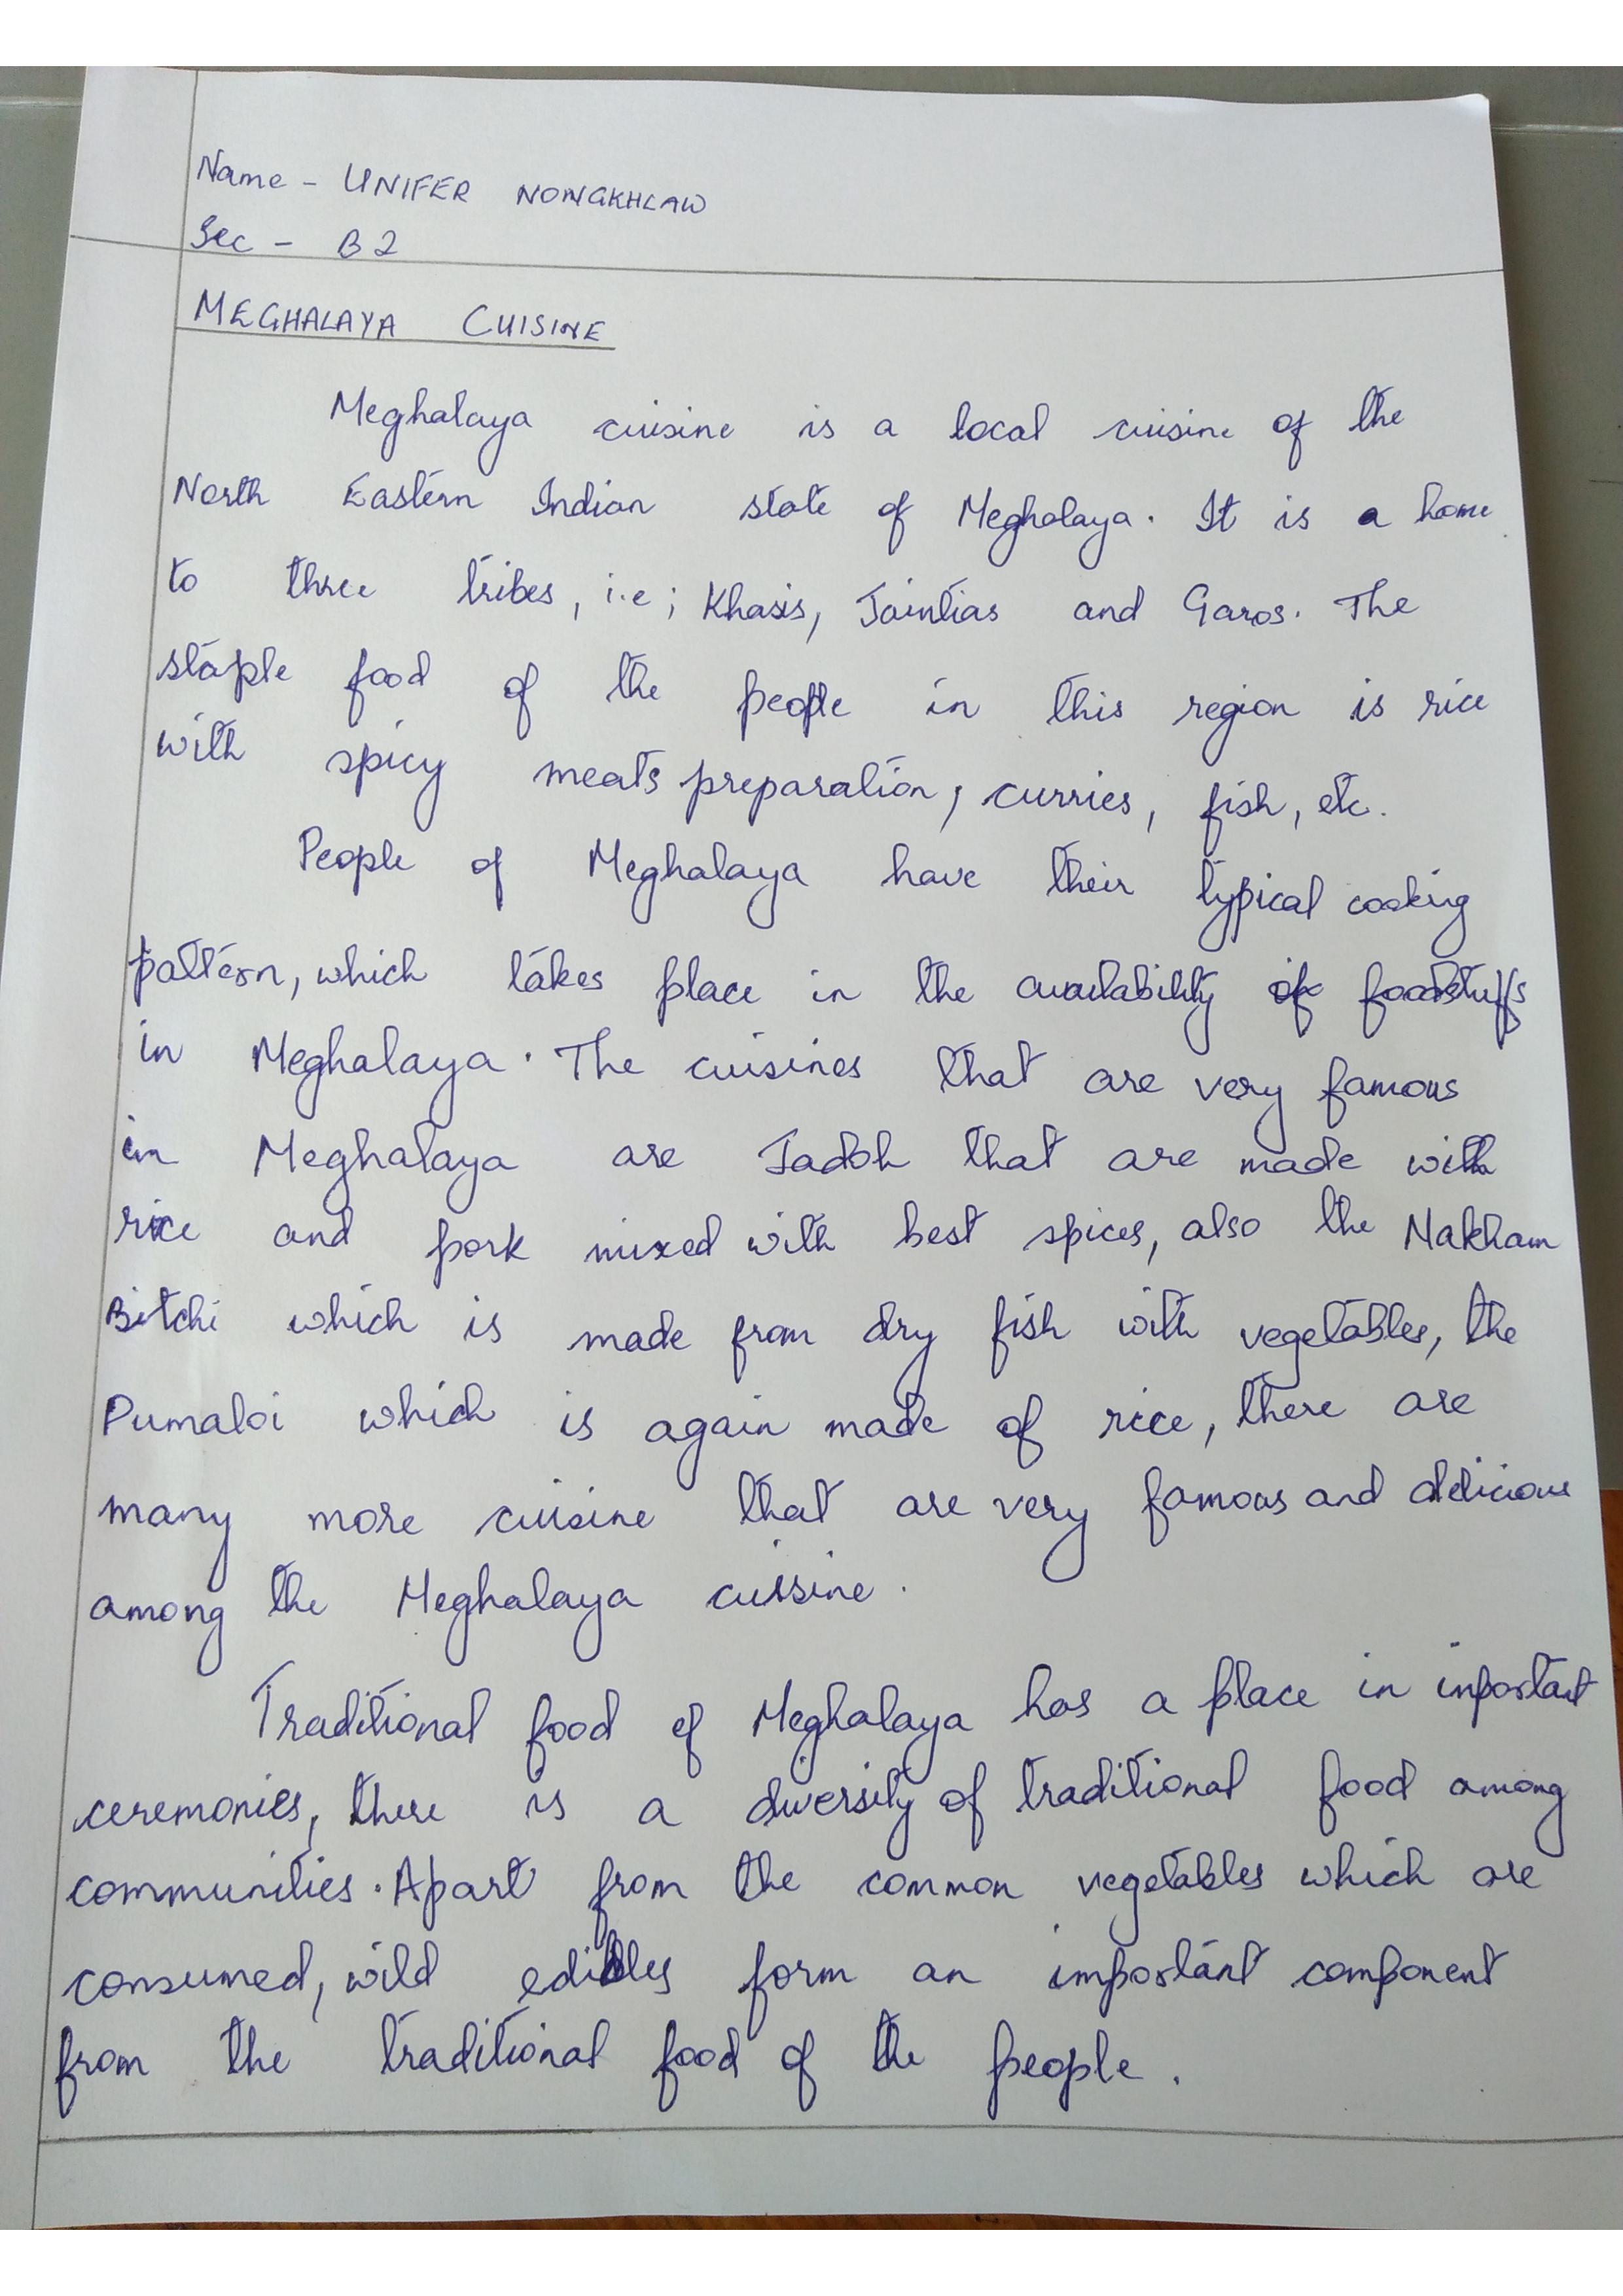 Name - UNIFER NONGKHLAW
Sec - B2
MEGHALAYA CUISINE
Meghalaya cuisine is a local cuisine of the
North Eastern Indian state of Meghalaya. It is a home
to three tribes, i.e; Khasis, Jaintias and Garos. The
staple food of the people in this region is rice
with spicy meats preparation, curries, fish, etc.
People of Meghalaya have their typical cooking
pattern, which takes place in the availability of foodstuffs
in Meghalaya. The cuisines that are very famous
in Meghalaya are Jadoh that are made with
rice and pork mixed with best spices, also the Nakham
Bitchi which is made from dry fish with vegetables, the
Pumaloi which is again made of rice, there are
many more cuisine that are very famous and delicious
among the Meghalaya cuisine.
Traditional food of Meghalaya has a place in important
ceremonies, there is a diversity of traditional food among
communities. Apart from the common vegetables which are
consumed, wild edibles form an important component
from the traditional food of the people.